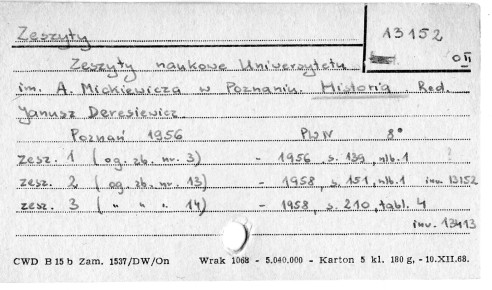 Zeszyty
13152
OII
Zeszyty naukowe Uniwersytetu
im. A. Mickiewicza w Poznaniu. Historia Red.
Janusz Deresiewicz
Poznań 1956 PWN 8°
zesz. 1 (og. zb. nr. 3) - 1956, s. 139, nlb. 1 ?
zesz. 2 (og. zb. nr. 13) - 1958, s. 151, nlb. 1 inw 13152
zesz. 3 ( " " " 14) - 1958, s. 210, tabl. 4
inw. 13413
CWD B 15 b Zam. 1537/DW/On Wrak 1068 - 5.040.000 - Karton 5 kl. 180 g, - 10.XII.68.